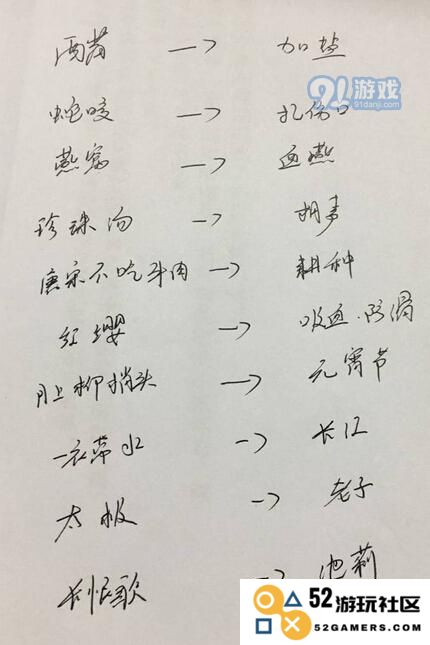 酒觞 → 加盐
91游戏
91danji.com
蛇咬 → 扎伤口
燕窝 → 血燕
珍珠汤 → 胡萝
唐宋不吃牛肉 → 耕种
红缨 → 吸血.防滑
月上柳梢头 → 元宵节
一衣带水 → 长江
太极 → 老子
长恨歌 → 池莉
52游玩社区
52GAMERS.COM